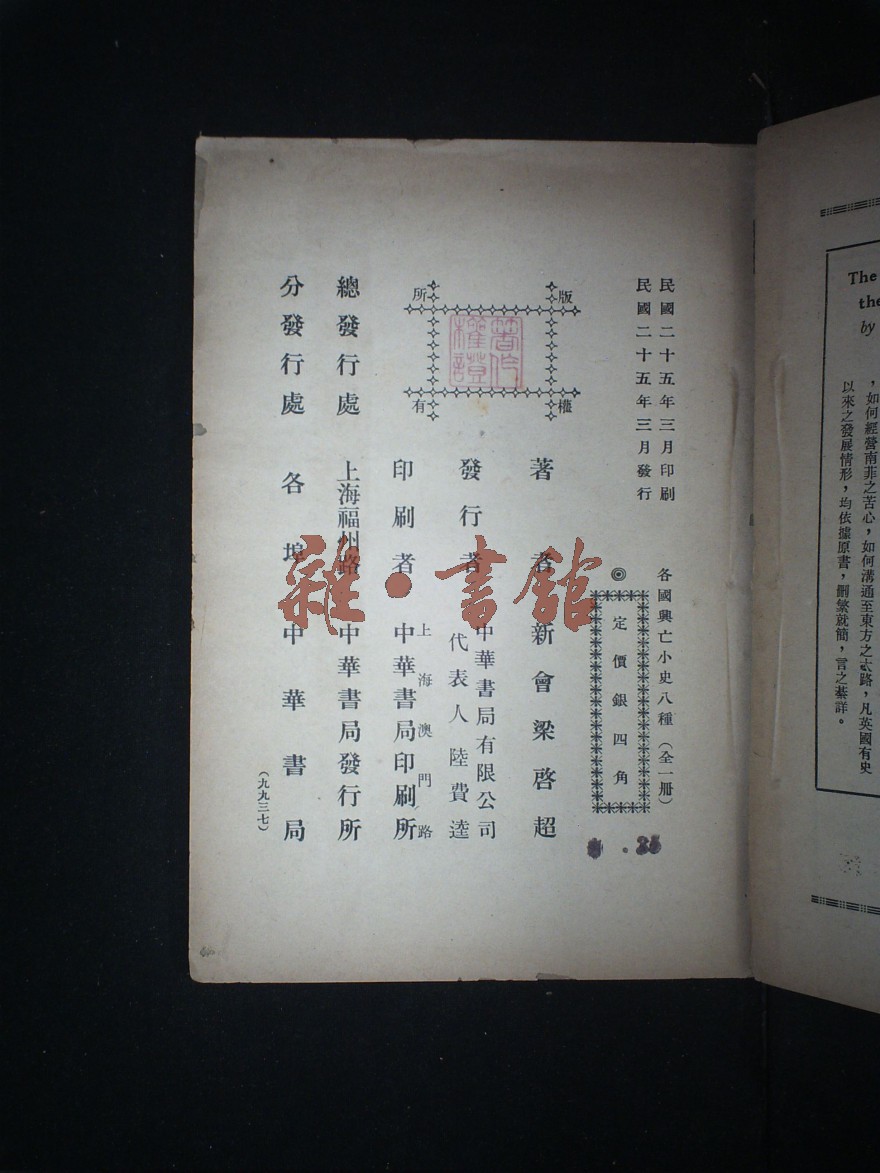 民國二十五年三月印刷
民國二十五年三月發行
各國興亡小史八種（全一冊）
◎
定價銀四角
.25
版權所有
著作權證
著者 新會梁啓超
發行者 中華書局有限公司
代表人 陸費逵
印刷者 上海澳門路
中華書局印刷所
總發行處 上海福州路 中華書局發行所
分發行處 各埠中華書局
（九九三七）
雜·書館
The
the
by
，如何經營南菲之苦心，如何溝通至東方之大路，凡英國有史
以來之發展情形，均依據原書，刪繁就簡，言之綦詳。